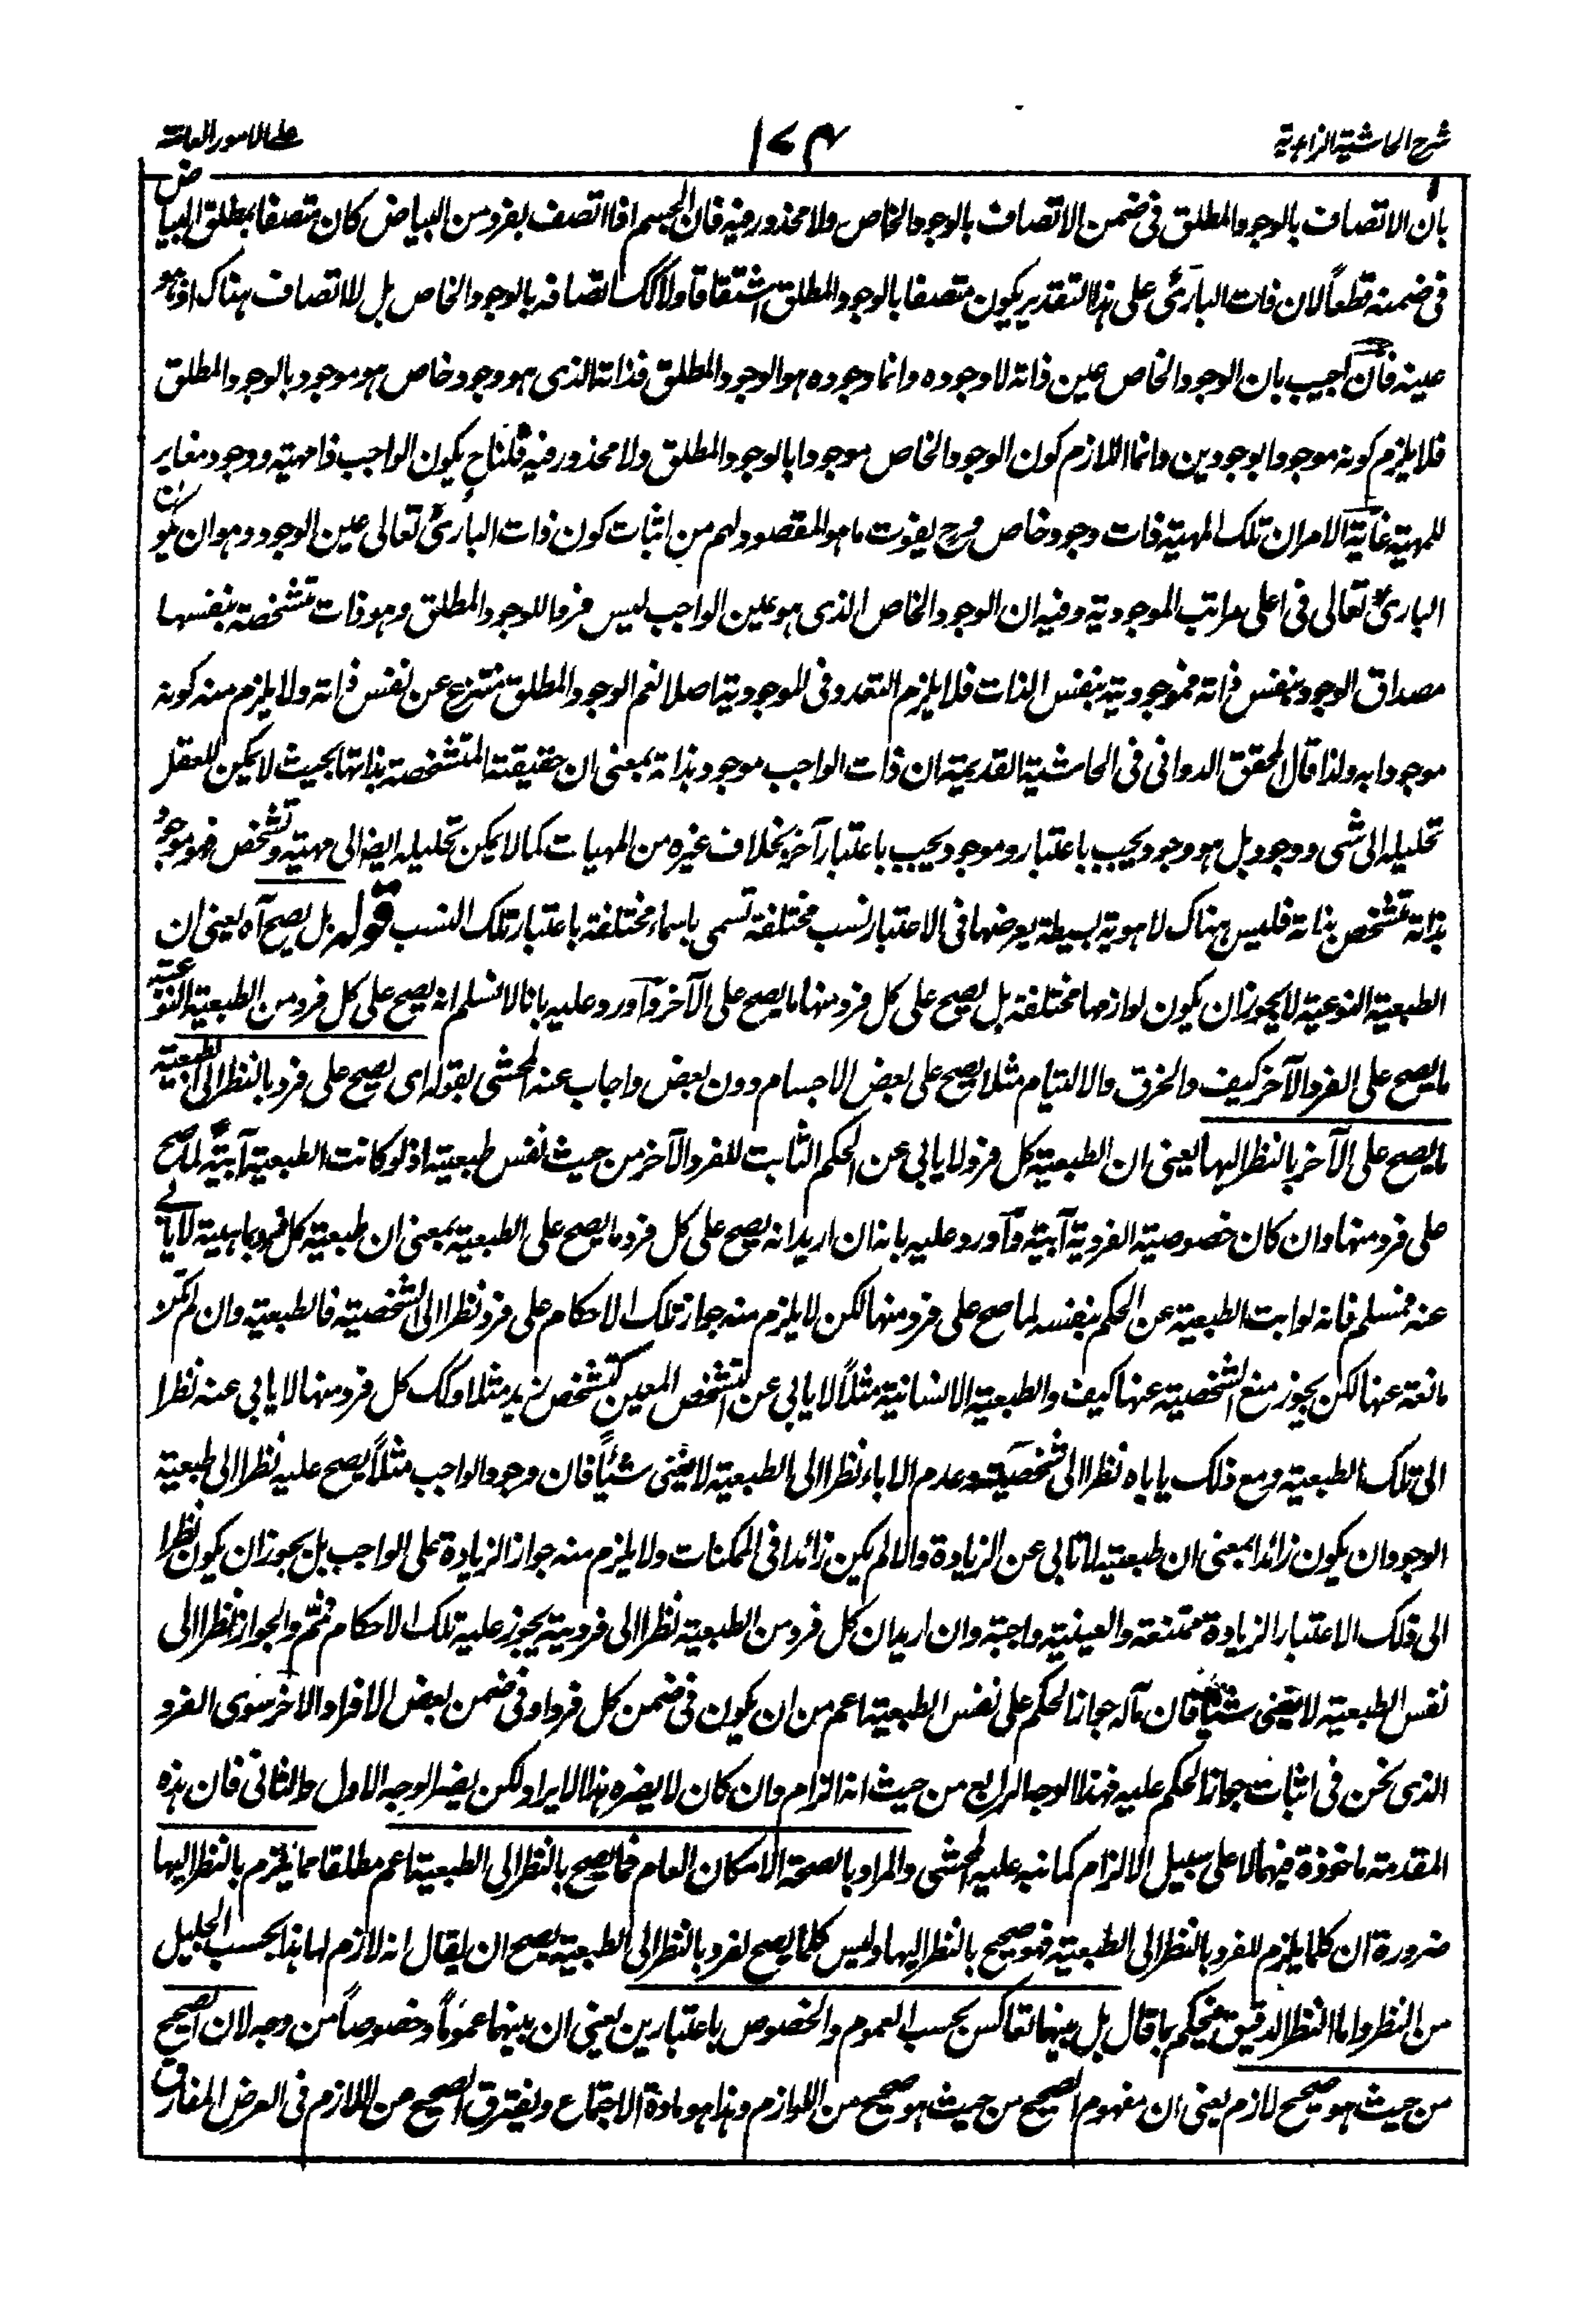 شرح الحاشية الزاهدية
١٧٤
على الامور العامة
بان الاتصاف بالوجود المطلق فى ضمن الاتصاف بالوجود الخاص ولا محذور فيه فان الجسم اذا اتصف بفرد من البياض كان متصفا بمطلق البياض
فى ضمنه قطعاً لان ذات البارئ على هذا التقدير يكون متصفا بالوجود المطلق اشتقاقا ولا كك اتصافه بالوجود الخاص بل لا اتصاف هناك اذ هو
عينه فان اجيب بان الوجود الخاص عين ذاته لا وجوده وانما وجوده هو الوجود المطلق فذاته الذى هو وجود خاص هو موجود بالوجود المطلق
فلا يلزم كونه موجودا بوجودين وانما اللازم كون الوجود الخاص موجودا بالوجود المطلق ولا محذور فيه قلنا ح يكون الواجب ذا مهية ووجود مغاير
للمهية غاية الامر ان تلك المهية ذات وجود خاص و ح يفوت ما هو المقصود لهم من اثبات كون ذات البارئ تعالى عين الوجود وهو ان يكون
البارئ تعالى فى اعلى مراتب الموجودية وفيه ان الوجود الخاص الذى هو عين الواجب ليس فردا للوجود المطلق وهو ذات متشخصة بنفسها
مصداق الوجود بنفس ذاته فموجودية بنفس الذات فلا يلزم التعدد فى الموجودية اصلا نعم الوجود المطلق منتزع عن نفس ذاته ولا يلزم منه كونه
موجودا به ولذا قال المحقق الدوانى فى الحاشية القديمة ان ذات الواجب موجود بذاته بمعنى ان حقيقته المتشخصة بذاتها بحيث لا يمكن للعقل
تحليله الى شى ووجود بل هو وجود يجيب باعتبار وموجود يجيب باعتبار آخر بخلاف غيره من المهيات كما لا يمكن تحليله ايضا الى مهية وتشخص فهو موجود
بذاته تشخص بذاته فليس هناك الا هوية بسيطة يعرضها فى الاعتبار نسب مختلفة تسمى باسماء مختلفة باعتبار تلك النسب قوله بل يصح آه يعنى ان
الطبعية النوعية لا يجوز ان يكون لوازمها مختلفة بل يصح على كل فرد منها ما يصح على الآخر واورد عليه بانا لا نسلم انه يصح على كل فرد من الطبعية النوعية
ما يصح على الفرد الآخر كيف والخرق والالتيام مثلا يصح على بعض الاجسام دون بعض واجاب عنه المحشى بقوله اى يصح على فرد بالنظر الى الطبعية
ما يصح على الآخر بالنظر اليها يعنى ان الطبعية كل فرد لا يابى عن الحكم الثابت للفرد الآخر من حيث نفس طبعية اذ لو كانت الطبعية آبية لما صح
على فرد منها وان كان خصوصية الفردية آبية واورد عليه بانه ان اريد انه يصح على كل فرد ما يصح على الطبعية بمعنى ان طبعية كل فرد بما هية لا يابى
عنه فمسلم فانه لو ابت الطبعية عن الحكم بنفسه لما صح على فرد منها لكن لا يلزم منه جواز تلك الاحكام على فرد نظرا الى الشخصية فالطبعية وان لم تكن
مانعة عنها لكن يجوز منع الشخصية عنها كيف والطبعية الانسانية مثلاً لا يابى عن التشخص المعين كتشخص زيد مثلا وكك كل فرد منها لا يابى عنه نظرا
الى تلك الطبعية ومع ذلك ياباه نظرا الى شخصية وعدم الاباء نظرا الى الطبعية لا يغنى شيئاً فان وجود الواجب مثلاً يصح عليه نظرا الى طبعية
الوجود ان يكون زائدا بمعنى ان طبعية لا تابى عن الزيادة والا لم يكن زائدا فى الممكنات ولا يلزم منه جواز الزيادة على الواجب بل يجوز ان يكون نظرا
الى ذلك الاعتبار الزيادة ممتنعة والعينية واجبة وان اريد ان كل فرد من الطبعية نظرا الى فردية يجوز عليه تلك الاحكام فمنم والجواز نظرا الى
نفس الطبعية لا يغنى شيئا فان مآله جواز الحكم على نفس الطبعية اعم من ان يكون فى ضمن كل فرد او فى ضمن بعض الافراد الاخر سوى الفرد
الذى نحن فى اثبات جواز الحكم عليه فهذا الوجه الرابع من حيث انه الزام وان كان لا يضره هذا الايراد ولكن يضر الوجه الاول والثانى فان هذه
المقدمة ماخوذة فيهما لا على سبيل الالزام كما نبه عليه المحشى والمراد بالصحة الامكان العام فما يصح بالنظر الى الطبعية اعم مطلقا مما يلزم بالنظر اليها
ضرورة ان كلما يلزم للفرد بالنظر الى الطبعية فهو صحيح بالنظر اليها وليس كلما يصح لفرد بالنظر الى الطبعية يصح ان يقال انه لازم لها هذا بحسب الجليل
من النظر واما النظر الدقيق فيحكم بما قال بل بينهما تعاكس بحسب العموم والخصوص باعتبارين يعنى ان بينهما عموماً وخصوصاً من وجه لان الصحيح
من حيث هو صحيح لازم يعنى ان مفهوم الصحيح من حيث هو صحيح من اللوازم وهذا هو مادة الاجتماع ويفترق الصحيح من اللازم فى العرض المفارق